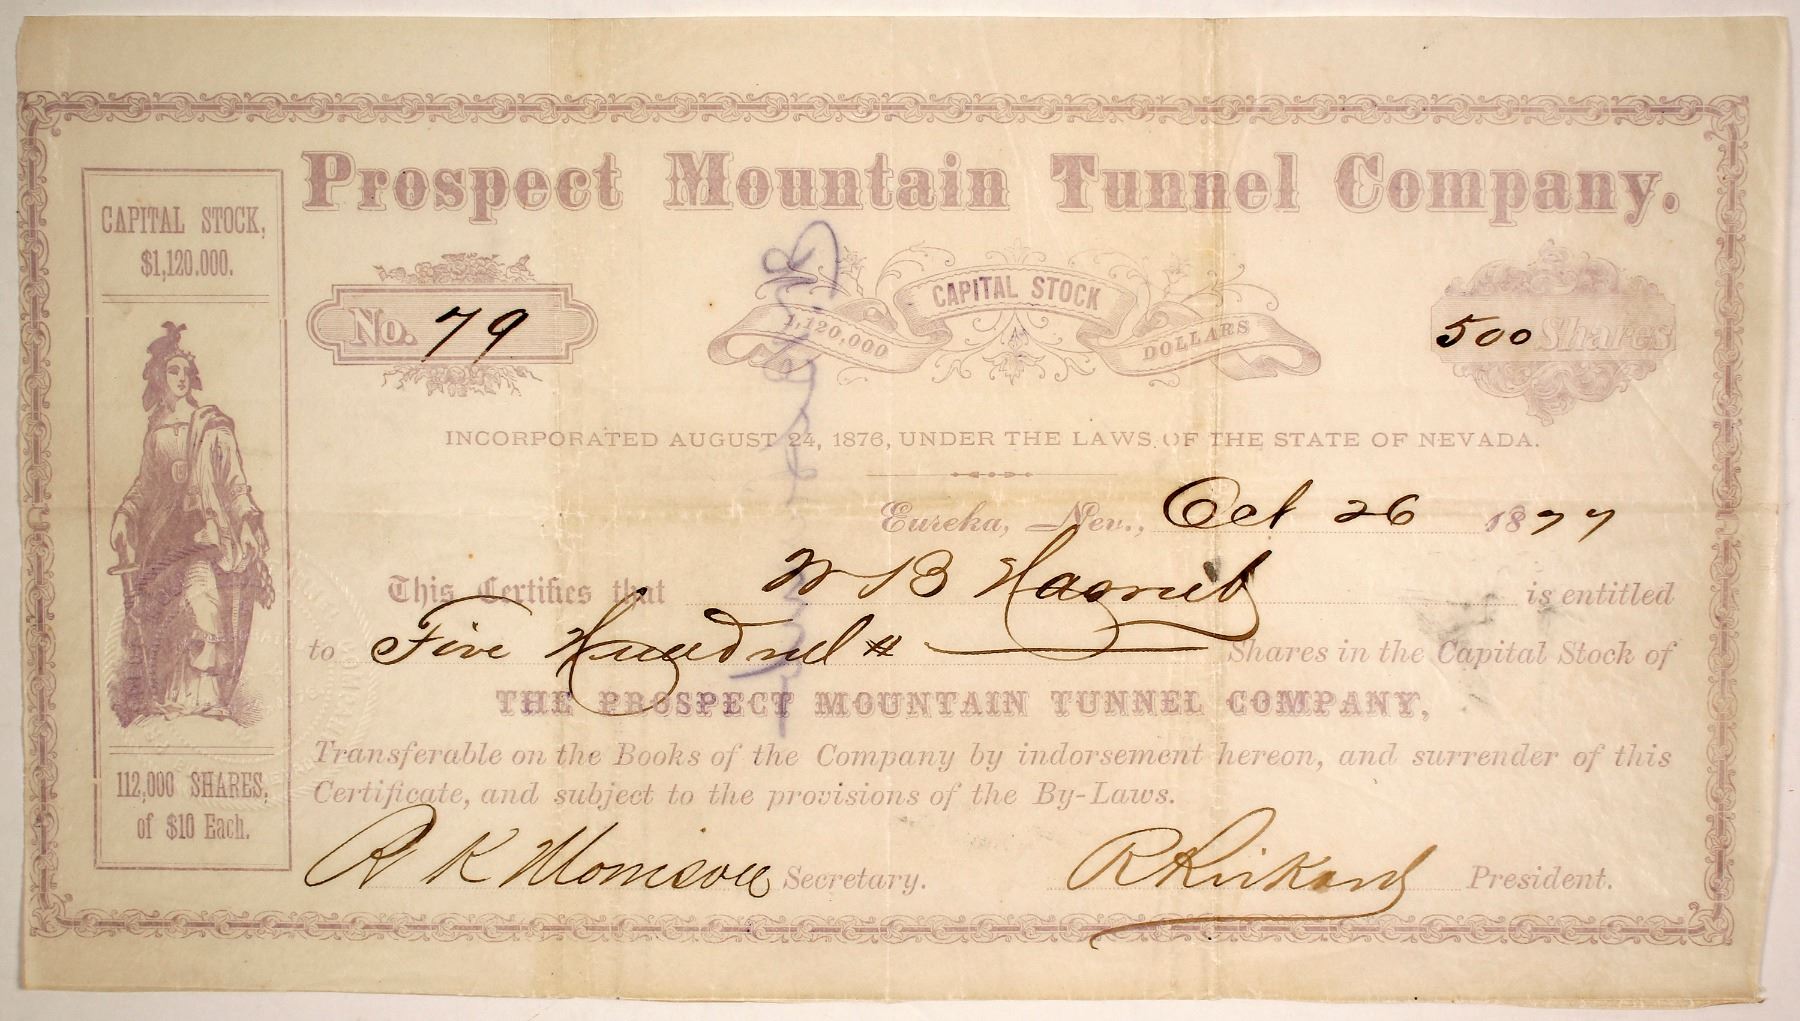 Prospect Mountain Tunnel Company.
CAPITAL STOCK,
$1,120.000.
No. 79
CAPITAL STOCK
1,120,000 DOLLARS
500 Shares
INCORPORATED AUGUST 24, 1876, UNDER THE LAWS OF THE STATE OF NEVADA.
Eureka, Nev., Oct 26 1877
This Certifies that W B is entitled
to Five Hundred Shares in the Capital Stock of
THE PROSPECT MOUNTAIN TUNNEL COMPANY,
Transferable on the Books of the Company by indorsement hereon, and surrender of this
Certificate, and subject to the provisions of the By-Laws.
112,000 SHARES,
of $10 Each.
R K Morrison Secretary.
R Rickard President.